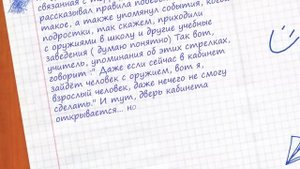 связанная с т
рассказывал правила пове
такое, а также упомянул события, когда
подростки, так скажем, приходили
с оружиями в школу и другие учебные
заведения ( думаю понятно) Так вот,
учитель, упоминания об этих стрелках,
говорит :" Даже если сейчас в кабинет
зайдёт человек с оружием, вот я,
взрослый человек, даже нечего не смогу
сделать." И тут, дверь кабинета
открывается... но